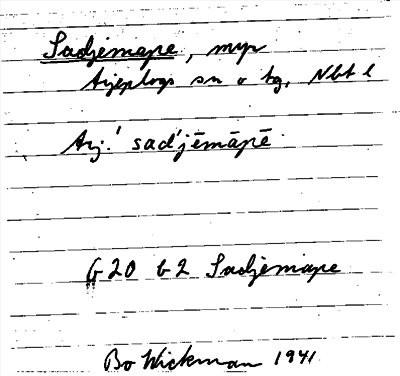 Sadjemape, myr
Arjeplogs sn o tg, Nbt l
Arj.! sad'jēmāpē
G 20 b 2 Sadjemape
Bo Wickman 1941